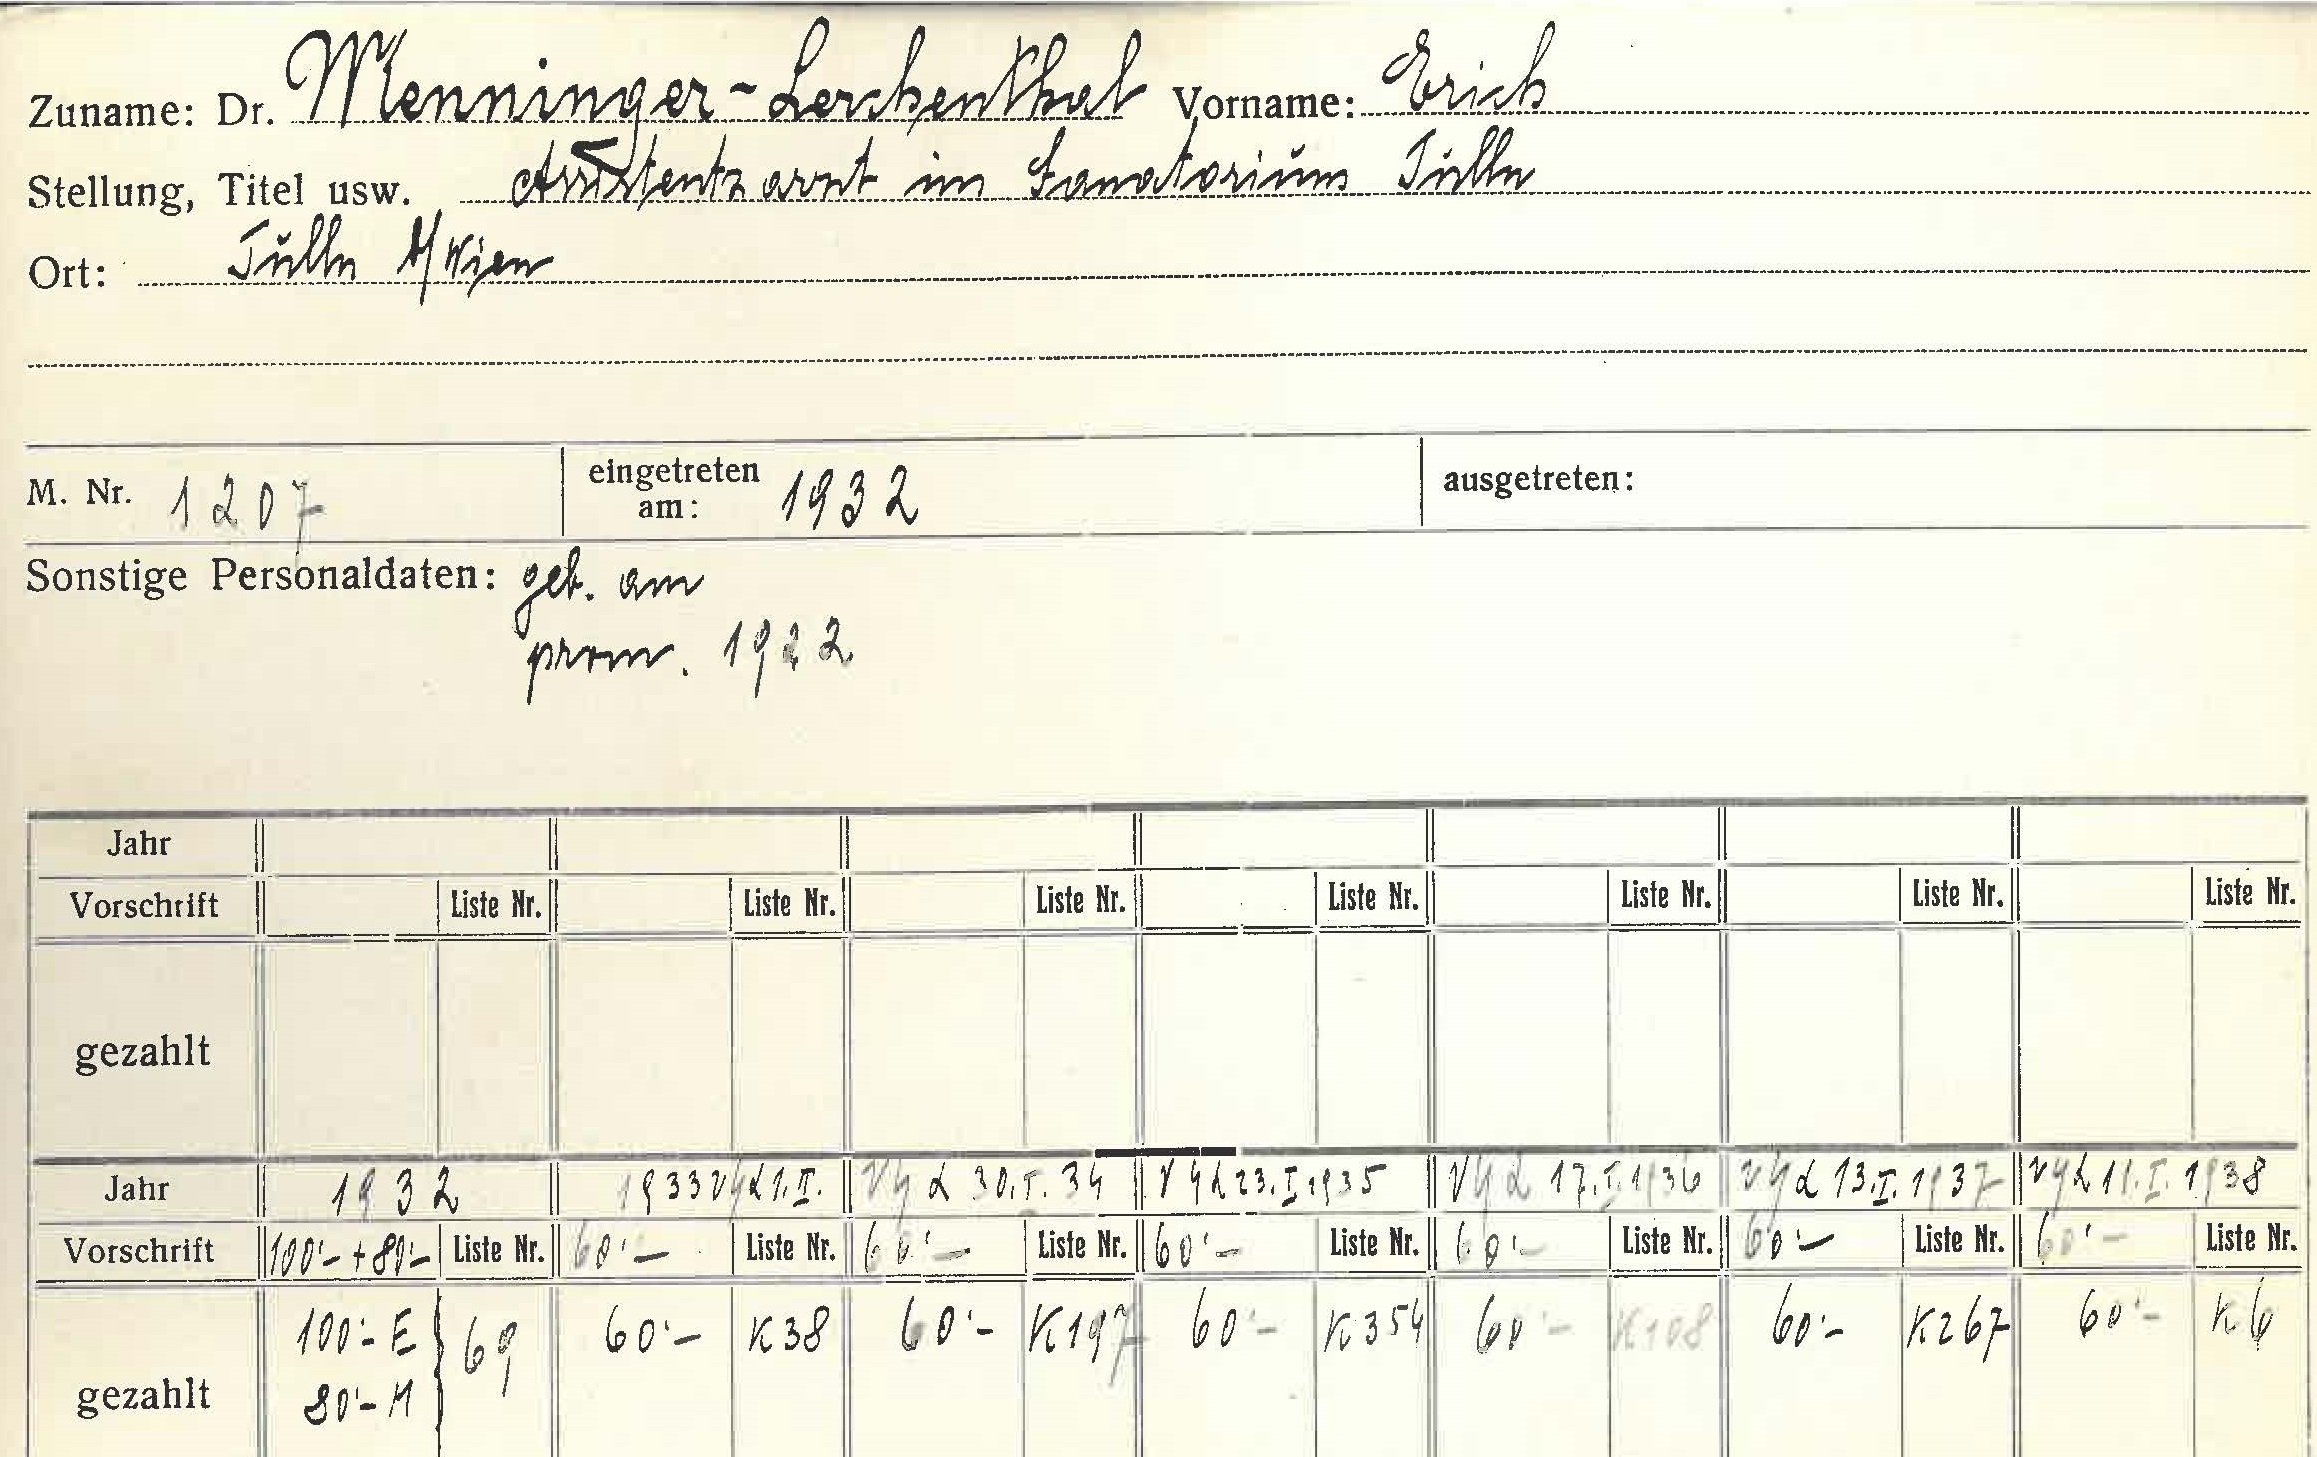 Zuname: Dr. Menninger-Lerchenthal Vorname: Erich
Stellung, Titel usw. Assistentzarzt im Sanatorium Tulln
Ort: Tulln b/Wien
M. Nr. 1207 eingetreten am: 1932 ausgetreten:
Sonstige Personaldaten: geb. am
prom. 1922
Jahr
Vorschrift Liste Nr. Liste Nr. Liste Nr. Liste Nr. Liste Nr. Liste Nr. Liste Nr.
gezahlt
Jahr 1932 1933 1.II. 30.I.34 23.I.1935 17.I.1936 13.I.1937 11.I.1938
Vorschrift 100'- + 80'- Liste Nr. 60'- Liste Nr. 60'- Liste Nr. 60'- Liste Nr. 60'- Liste Nr. 60'- Liste Nr. 60'- Liste Nr.
100'- E } 69 60'- K38 60'- K197 60'- K354 60'- K108 60'- K267 60'- K6
gezahlt 80'- M